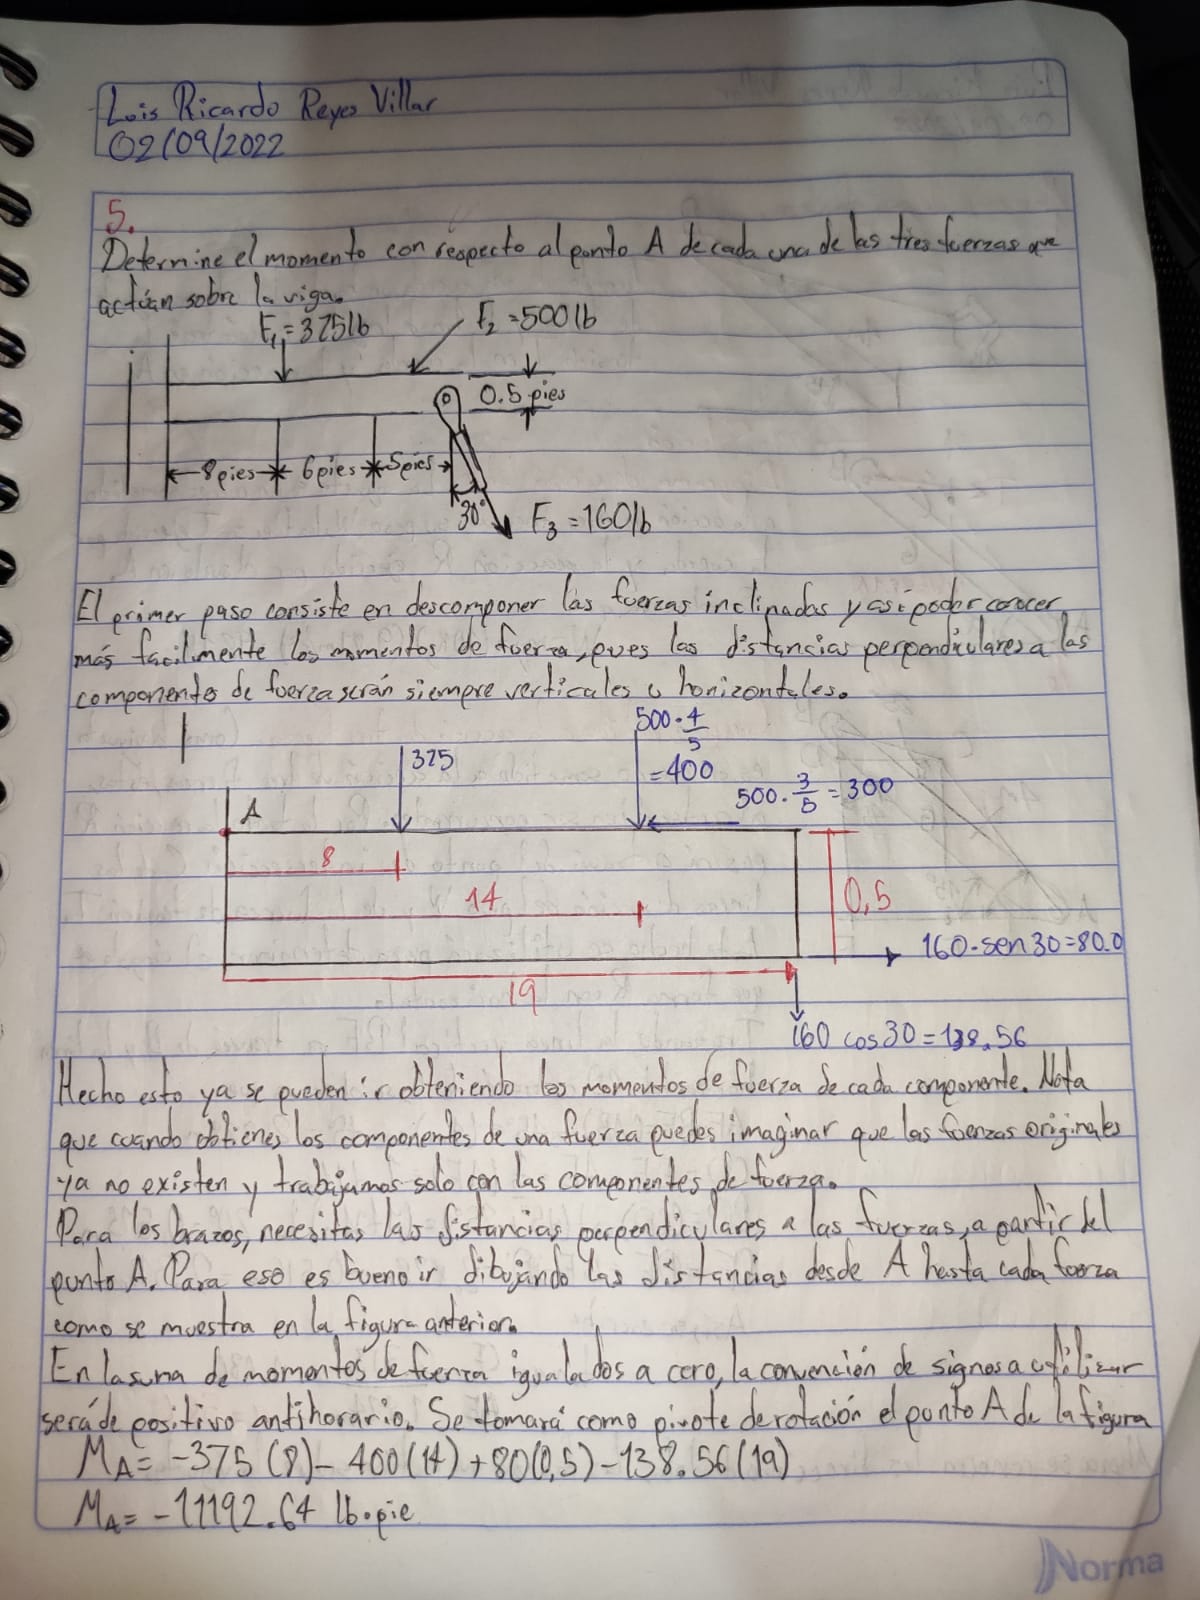 Luis Ricardo Reyes Villar
02/09/2022
5.
Determine el momento con respecto al punto A de cada una de las tres fuerzas que
actúan sobre la viga.
F₁=375lb
F₂=500lb
0.5 pies
8pies
6pies
5pies
30°
F₃=160lb
El primer paso consiste en descomponer las fuerzas inclinadas y así poder conocer
más facilmente los momentos de fuerza, pues las distancias perpendiculares a las
componentes de fuerza serán siempre verticales u horizontales.
375
500·4/5
=400
500·3/5=300
A
8
14
0,5
160·sen30=80.0
19
160 cos30=138.56
Hecho esto ya se pueden ir obteniendo los momentos de fuerza de cada componente. Nota
que cuando obtienes los componentes de una fuerza puedes imaginar que las fuerzas originales
ya no existen y trabajamos solo con las componentes de fuerza.
Para los brazos, necesitas las distancias perpendiculares a las fuerzas, a partir del
punto A. Para eso es bueno ir dibujando las distancias desde A hasta cada fuerza
como se muestra en la figura anterior.
En la suma de momentos de fuerza igualados a cero, la convención de signos a utilizar
será de positivo antihorario. Se tomará como pivote de rotación el punto A de la figura
MA= -375(8)- 400(14)+80(0,5)-138.56(19)
MA= -11192.64 lb·pie
Norma